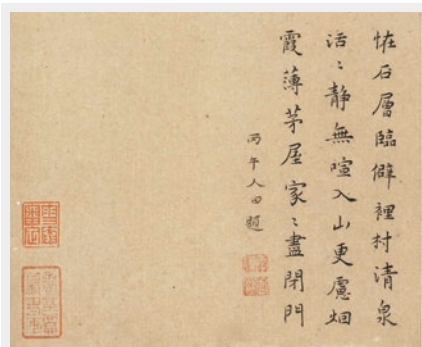 恠石層臨僻裡村清泉
活〻靜無喧入山更慮烟
霞薄茅屋家〻盡閉門
丙午人日題